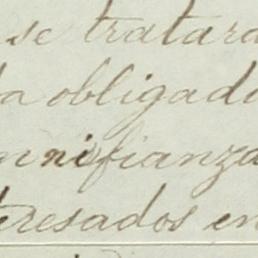 se tratara
a obligado
n ni fianza
teresados en